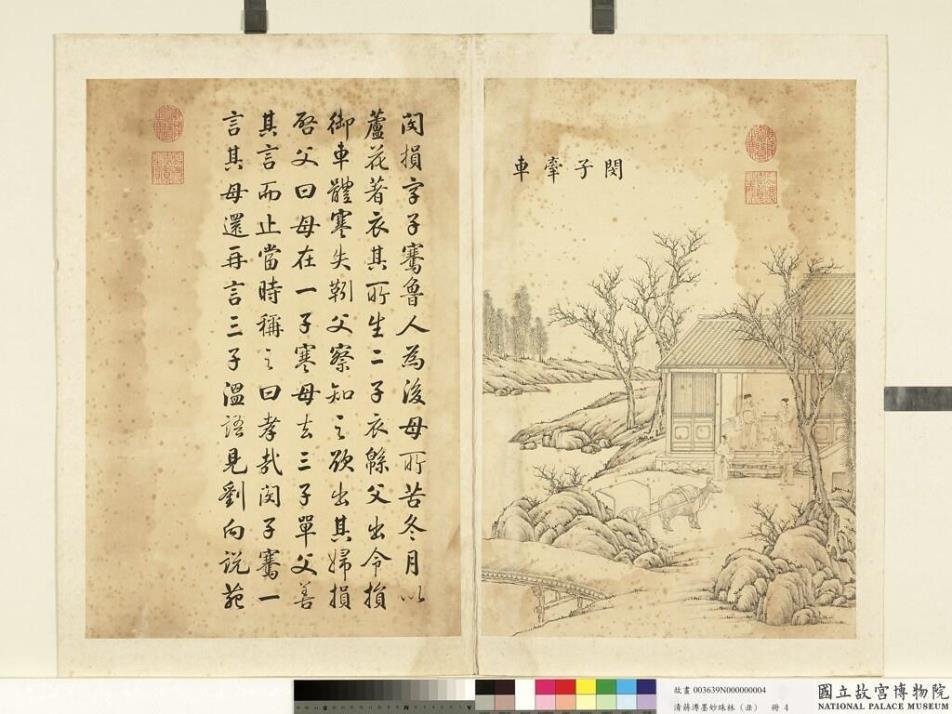 閔子牽車
閔損字子騫魯人為後母所苦冬月以
蘆花著衣其所生二子衣緜父出令損
御車體寒失靷父察知之欲出其婦損
啓父曰母在一子寒母去三子單父善
其言而止當時稱之曰孝哉閔子騫一
言其母還再言三子溫語見劉向說苑
故畫 003639N000000004
清蔣溥墨妙珠林(丑) 冊 4
國立故宮博物院
NATIONAL PALACE MUSEUM